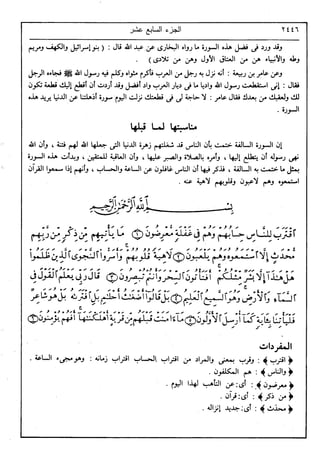 ٢٤٤٦
الجزء السابع عشر
وقد ورد في فضل هذه السورة ما رواه البخاري عن عبد الله قال : ( بنو إسرائيل والكهف ومريم
وطه والأنبياء هن من العتاق الأول وهن من تلادي ) .
وعن عامر بن ربيعة : أنه نزل به رجل من العرب فأكرم مثواه وكلم فيه رسول الله ﷺ فجاءه الرجل
فقال : إني استقطعت رسول الله واديا ما في ديار العرب واد أفضل وقد أردت أن أقطع إليك قطعة تكون
لك ولعقبك من بعدك فقال عامر : لا حاجة لي في قطعتك نزلت اليوم سورة أذهلتنا عن الدنيا يريد هذه
السورة .
مناسبتها لما قبلها
إن السورة السالفة ختمت بأن الناس قد شغلتهم زهرة الدنيا التي جعلها الله لهم فتنة ، وأن الله
نهى رسوله أن يتطلع إليها ، وأمره بالصلاة والصبر عليها ، وأن العاقبة للمتقين ، وبدأت هذه السورة
بمثل ما ختمت به السالفة ، فذكر فيها أن الناس غافلون عن الساعة والحساب ، وأنهم إذا سمعوا القرآن
استمعوه وهم لاعبون وقلوبهم لاهية عنه .
بسم الله الرحمن الرحيم
اقترب للناس حسابهم وهم في غفلة معرضون ١ ما يأتيهم من ذكر من ربهم
محدث إلا استمعوه وهم يلعبون ٢ لاهية قلوبهم وأسروا النجوى الذين ظلموا
هل هذا إلا بشر مثلكم أفتأتون السحر وأنتم تبصرون ٣ قال ربي يعلم القول في
السماء والأرض وهو السميع العليم ٤ بل قالوا أضغاث أحلام بل افتراه بل هو شاعر
فليأتنا بآية كما أرسل الأولون ٥ ما آمنت قبلهم من قرية أهلكناها أفهم يؤمنون ٦
المفردات
﴿ اقترب ﴾ : وقرب بمعنى والمراد من اقتراب الحساب اقتراب زمانه : وهو مجيء الساعة .
﴿ والناس ﴾ : هم المكلفون .
﴿ معرضون ﴾ : أي: عن التأهب لهذا اليوم .
﴿ من ذكر ﴾ : أي: قرآن .
﴿ محدث ﴾ : أي: جديد إنزاله .